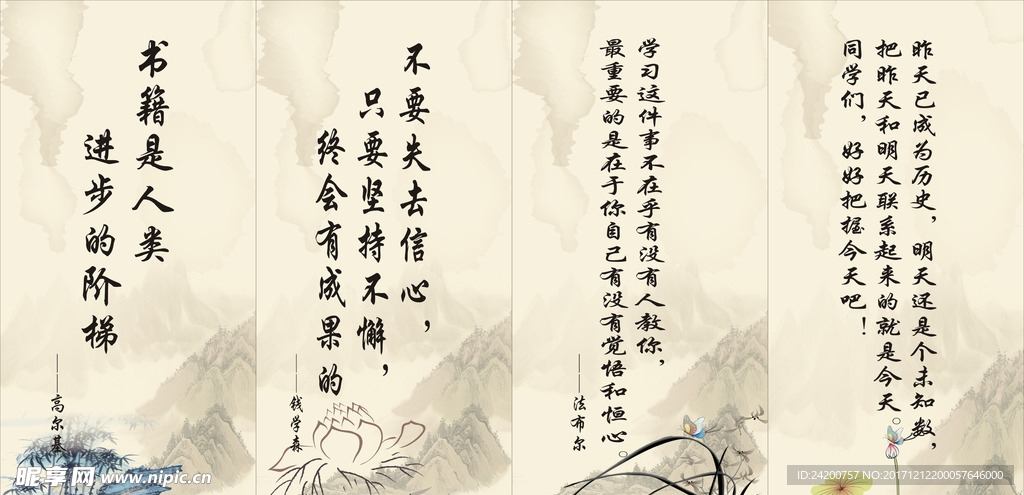 书籍是人类
进步的阶梯
——高尔基
不要失去信心，
只要坚持不懈，
终会有成果的
——钱学森
学习这件事不在乎有没有人教你，
最重要的是在于你自己有没有觉悟和恒心。
——法布尔
昨天已成为历史，明天还是个未知数，
把昨天和明天联系起来的就是今天。
同学们，好好把握今天吧！
昵享网 www.nipic.cn
ID:24200757 NO:20171212200057646000